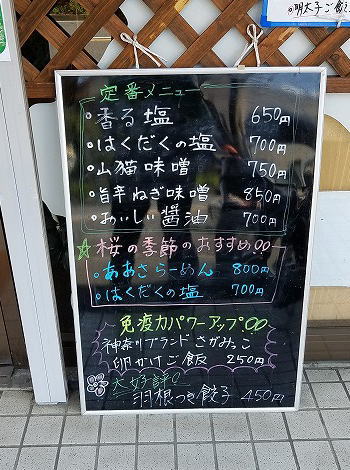 明太子ご飯
定番メニュー
香る塩 650円
はくだくの塩 700円
山猫味噌 750円
旨辛ねぎ味噌 850円
おいしい醤油 700円
☆桜の季節のおすすめ
あおさらーめん 800円
はくだくの塩 700円
免疫力パワーアップ
神奈川ブランドさがみっこ
卵かけご飯 250円
大好評
羽根つき餃子 450円